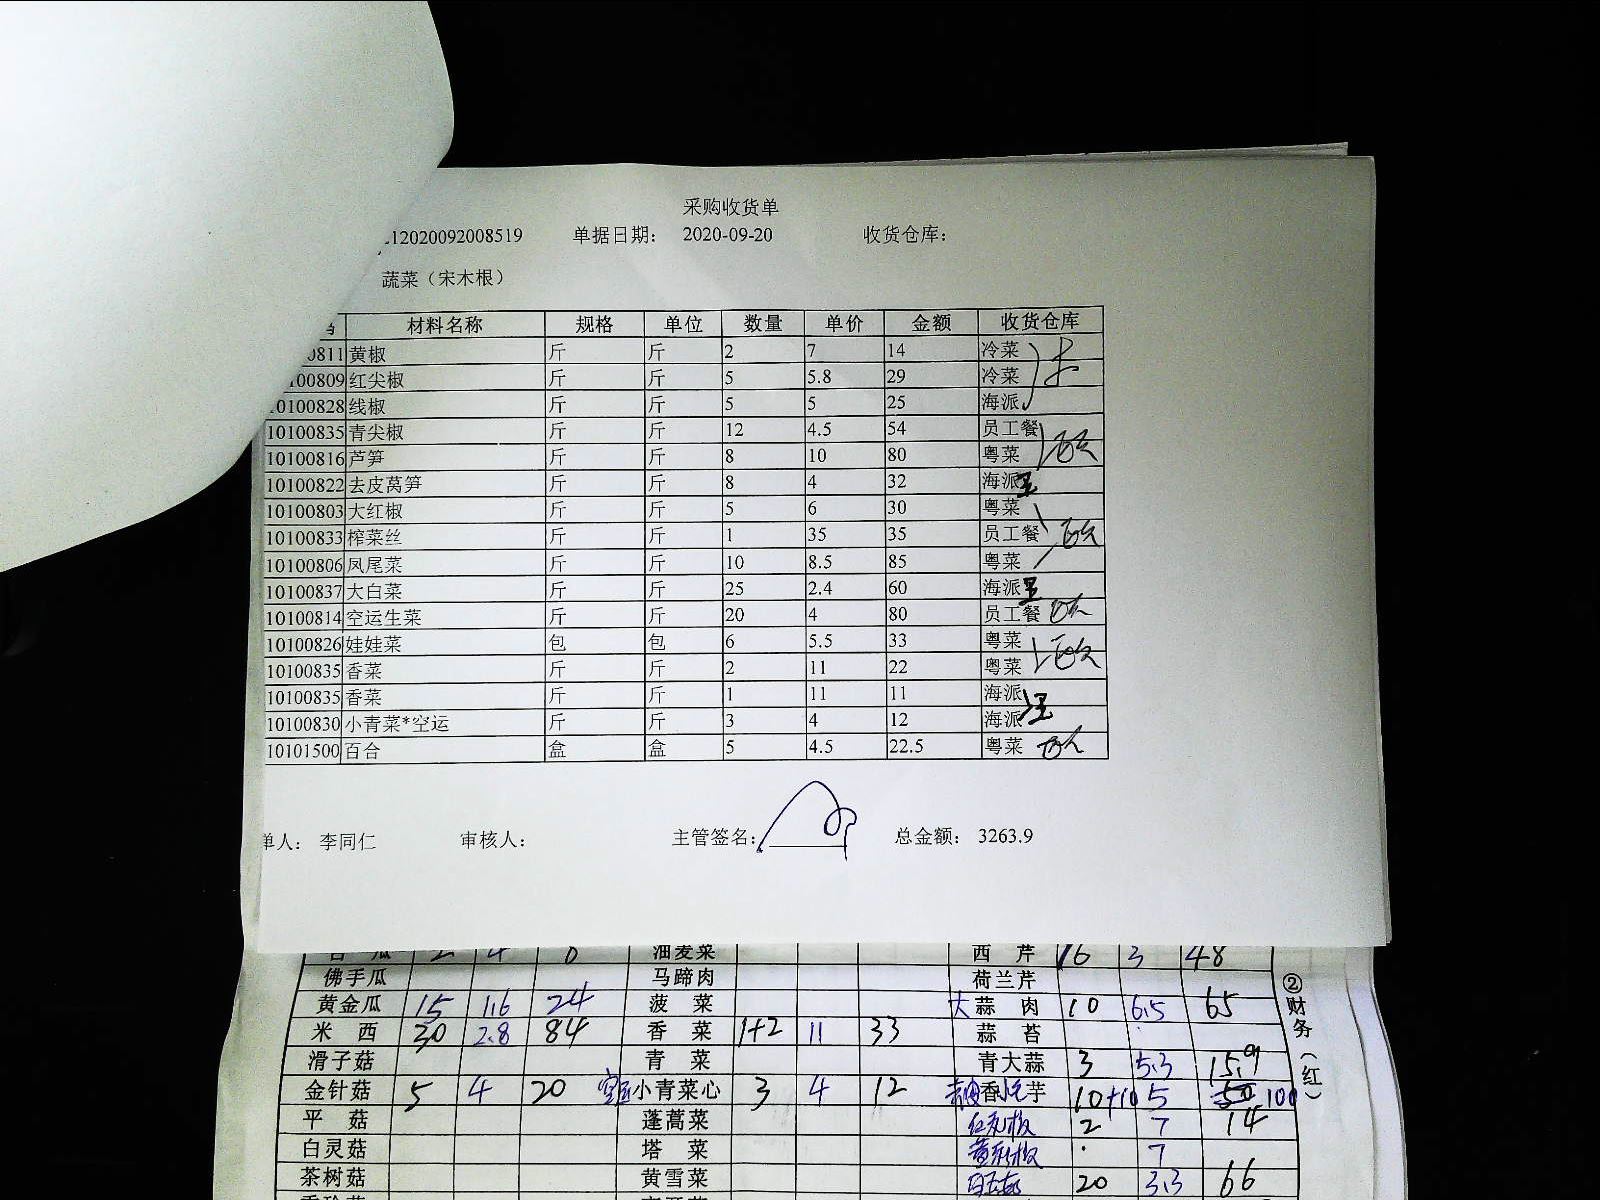 采购收货单
12020092008519 单据日期： 2020-09-20 收货仓库：
蔬菜（宋木根）
材料名称 规格 单位 数量 单价 金额 收货仓库
0811 黄椒 斤 斤 2 7 14 冷菜
100809 红尖椒 斤 斤 5 5.8 29 冷菜
10100828 线椒 斤 斤 5 5 25 海派
10100835 青尖椒 斤 斤 12 4.5 54 员工餐
10100816 芦笋 斤 斤 8 10 80 粤菜
10100822 去皮莴笋 斤 斤 8 4 32 海派
10100803 大红椒 斤 斤 5 6 30 粤菜
10100833 榨菜丝 斤 斤 1 35 35 员工餐
10100806 凤尾菜 斤 斤 10 8.5 85 粤菜
10100837 大白菜 斤 斤 25 2.4 60 海派
10100814 空运生菜 斤 斤 20 4 80 员工餐
10100826 娃娃菜 包 包 6 5.5 33 粤菜
10100835 香菜 斤 斤 2 11 22 粤菜
10100835 香菜 斤 斤 1 11 11 海派
10100830 小青菜*空运 斤 斤 3 4 12 海派
10101500 百合 盒 盒 5 4.5 22.5 粤菜
单人： 李同仁 审核人： 主管签名： 总金额： 3263.9
瓜 2 4 8 油麦菜 西芹 16 3 48
佛手瓜 马蹄肉 荷兰芹
黄金瓜 15 1.6 24 菠菜 大蒜肉 10 6.5 65
米西 30 2.8 84 香菜 1+2 11 33 蒜苔
滑子菇 青菜 青大蒜 3 5.3 15.9
金针菇 5 4 20 空运小青菜心 3 4 12 香芋 10+10 5 50 100
平菇 蓬蒿菜 2 7 14
白灵菇 塔菜 7
茶树菇 黄雪菜 20 3.3 66
②财务（红）